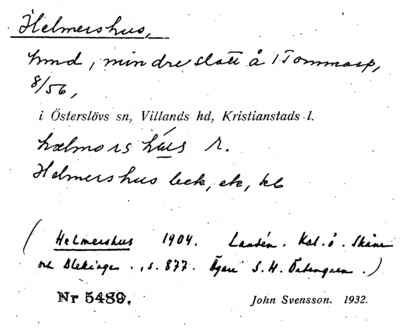 Helmershus,
hmd, mindre slott å 1 Tommarp,
8/56,
i Österslövs sn, Villands hd, Kristianstads l.
hælmors hús
Helmershus beck, ek, kb
(Helmershus 1904. Lantén. Kal. ö. Skåne
och Blekinge. s. 877. Ägare S. H. Östengren.)
Nr 5489. John Svensson. 1932.